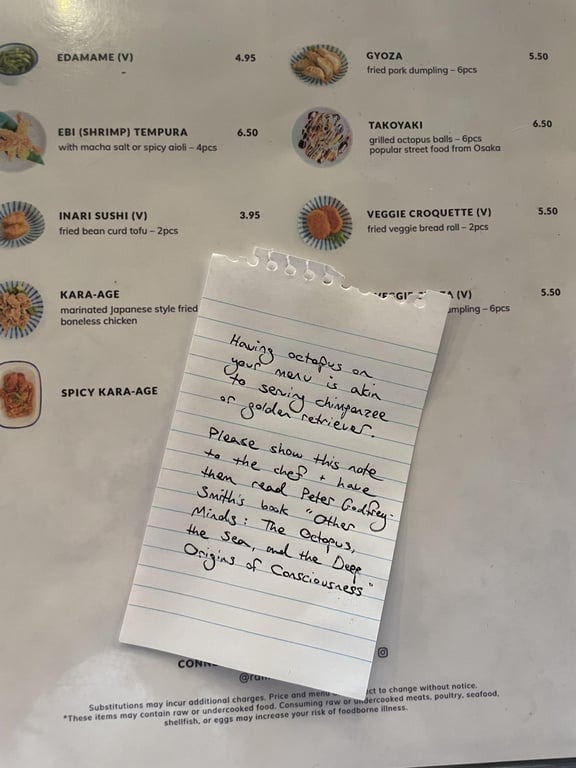 EDAMAME (V) 4.95
EBI (SHRIMP) TEMPURA 6.50
with macha salt or spicy aioli – 4pcs
INARI SUSHI (V) 3.95
fried bean curd tofu – 2pcs
KARA-AGE
marinated Japanese style fried
boneless chicken
SPICY KARA-AGE
GYOZA 5.50
fried pork dumpling – 6pcs
TAKOYAKI 6.50
grilled octopus balls – 6pcs
popular street food from Osaka
VEGGIE CROQUETTE (V) 5.50
fried veggie bread roll – 2pcs
(V) 5.50
– 6pcs
Having octopus on
your menu is akin
to serving chimpanzee
or golden retriever.
Please show this note
to the chef + have
them read Peter Godfrey-
Smith's book "Other
Minds: The Octopus,
the Sea, and the Deep
Origins of Consciousness"
Substitutions may incur additional charges. Price and menu to change without notice.
*These items may contain raw or undercooked food. Consuming raw or undercooked meats, poultry, seafood,
shellfish, or eggs may increase your risk of foodborne illness.